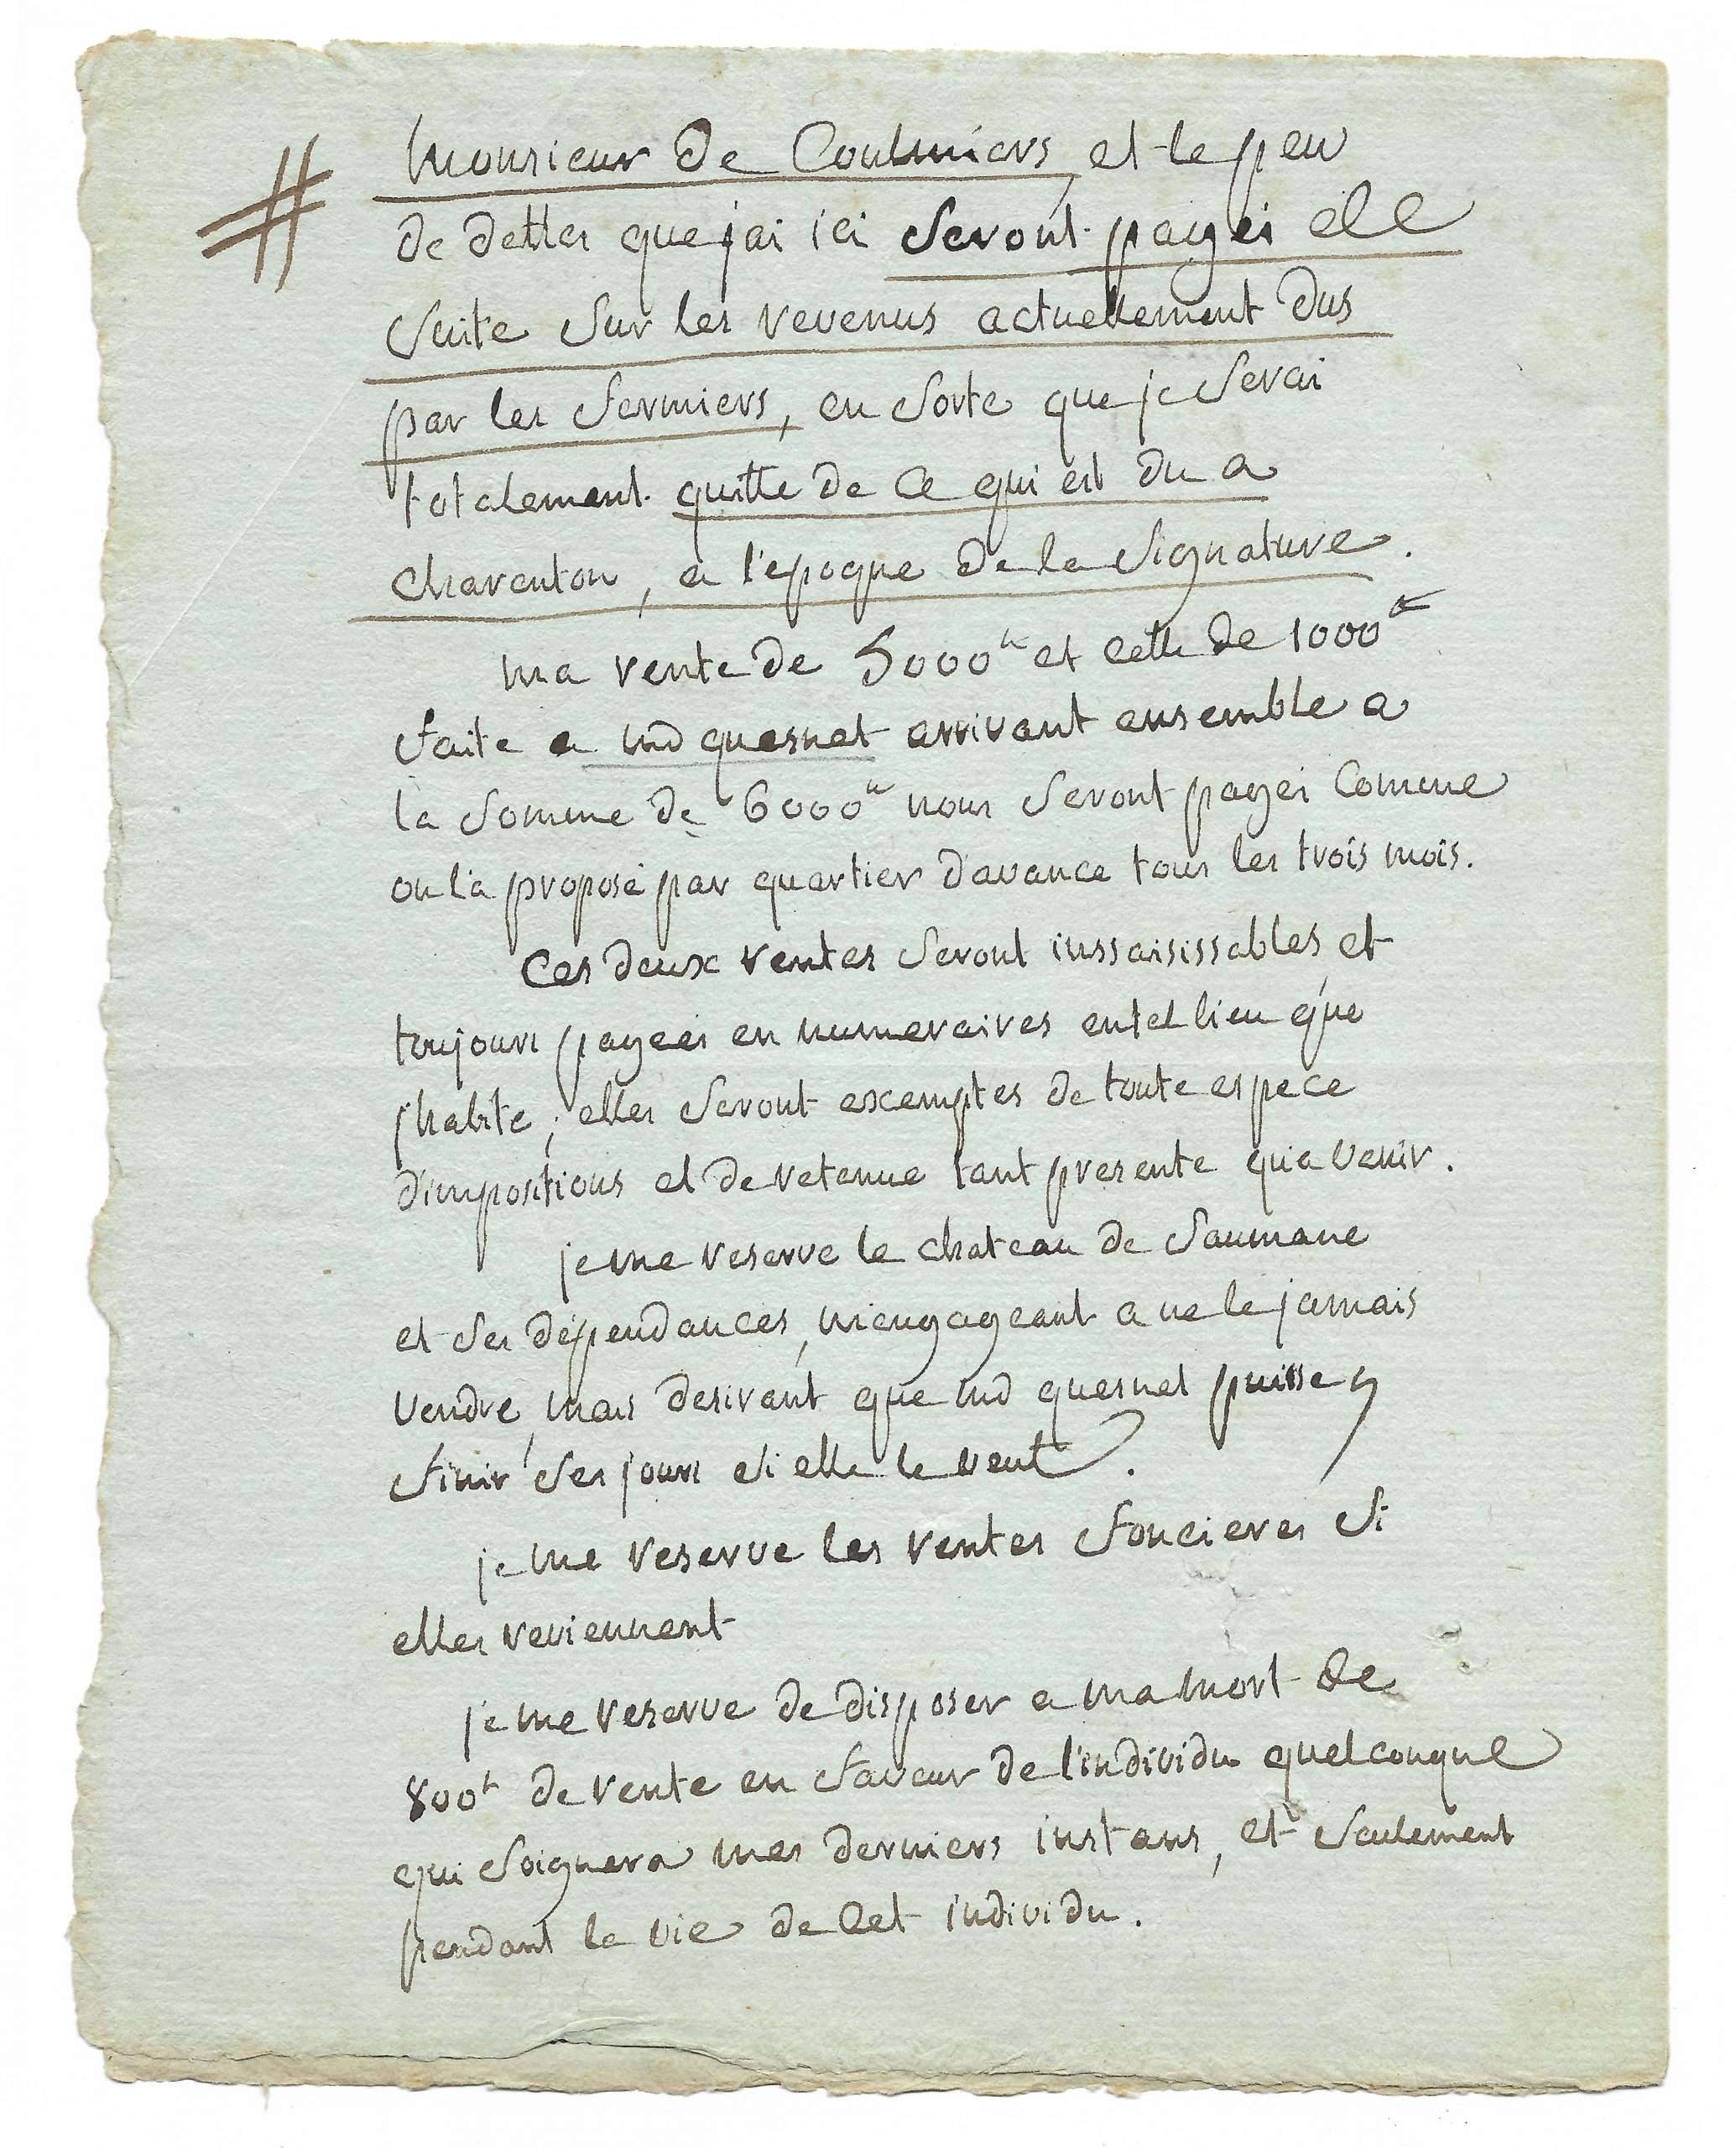 # Monsieur de Coulmiers, et le peu
de dettes que jai ici seront payés de
suite sur les revenus actuellement dus
par les fermiers, en sorte que je serai
totalement quitte de ce qui est du a
charenton, a l'epoque de la signature.
ma rente de 5000ᵗᵗ et celle de 1000ᵗᵗ
faite a md quesnet arrivant ensemble a
la somme de 6000ᵗᵗ nous seront payés comme
on l'a proposé par quartier d'avance tous les trois mois.
Ces deux rentes seront inssaisissables et
toujours payees en numeraires en tel lieu que
j'habite; elles seront exemptes de toute espece
d'impositions et de retenue tant presente qu'a venir.
je me reserve le chateau de saumane
et ses dépendances, m'engageant a ne le jamais
vendre, mais desirant que md quesnet puisse y
finir ses jours si elle le veut.
je me reserve les rentes foncieres si
elles reviennent
je me reserve de disposer a ma mort de
800ᵗ de rente en faveur de l'individu quelconque
qui soignera mes derniers instans, et seulement
pendant la vie de cet individu.